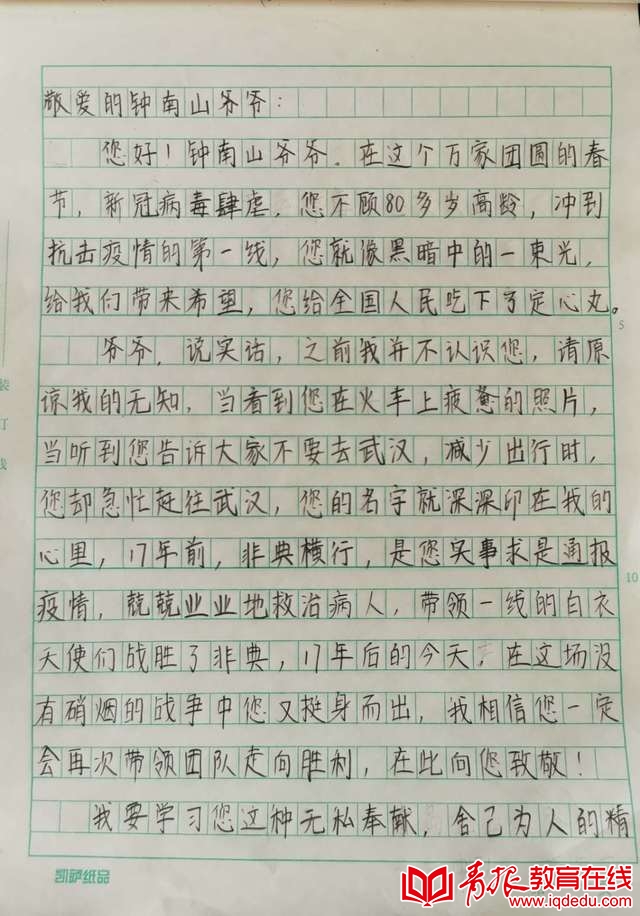 敬爱的钟南山爷爷：
您好！钟南山爷爷。在这个万家团圆的春
节，新冠病毒肆虐，您不顾80多岁高龄，冲到
抗击疫情的第一线，您就像黑暗中的一束光，
给我们带来希望，您给全国人民吃下了定心丸。
5
爷爷，说实话，之前我并不认识您，请原
谅我的无知，当看到您在火车上疲惫的照片，
当听到您告诉大家不要去武汉，减少出行时，
您却急忙赶往武汉，您的名字就深深印在我的
心里，17年前，非典横行，是您实事求是通报
10
疫情，兢兢业业地救治病人，带领一线的白衣
天使们战胜了非典，17年后的今天，在这场没
有硝烟的战争中您又挺身而出，我相信您一定
会再次带领团队走向胜利，在此向您致敬！
我要学习您这种无私奉献，舍己为人的精
装
订
线
凯萨纸品
青报教育在线
www.iqdedu.com